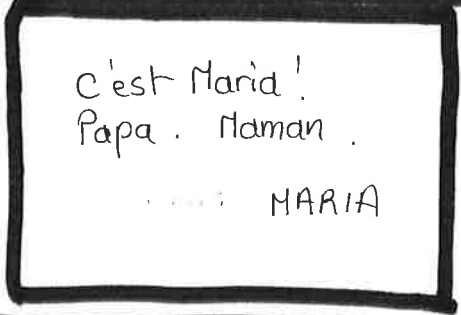 C'est Maria !
Papa . Maman .
MARIA